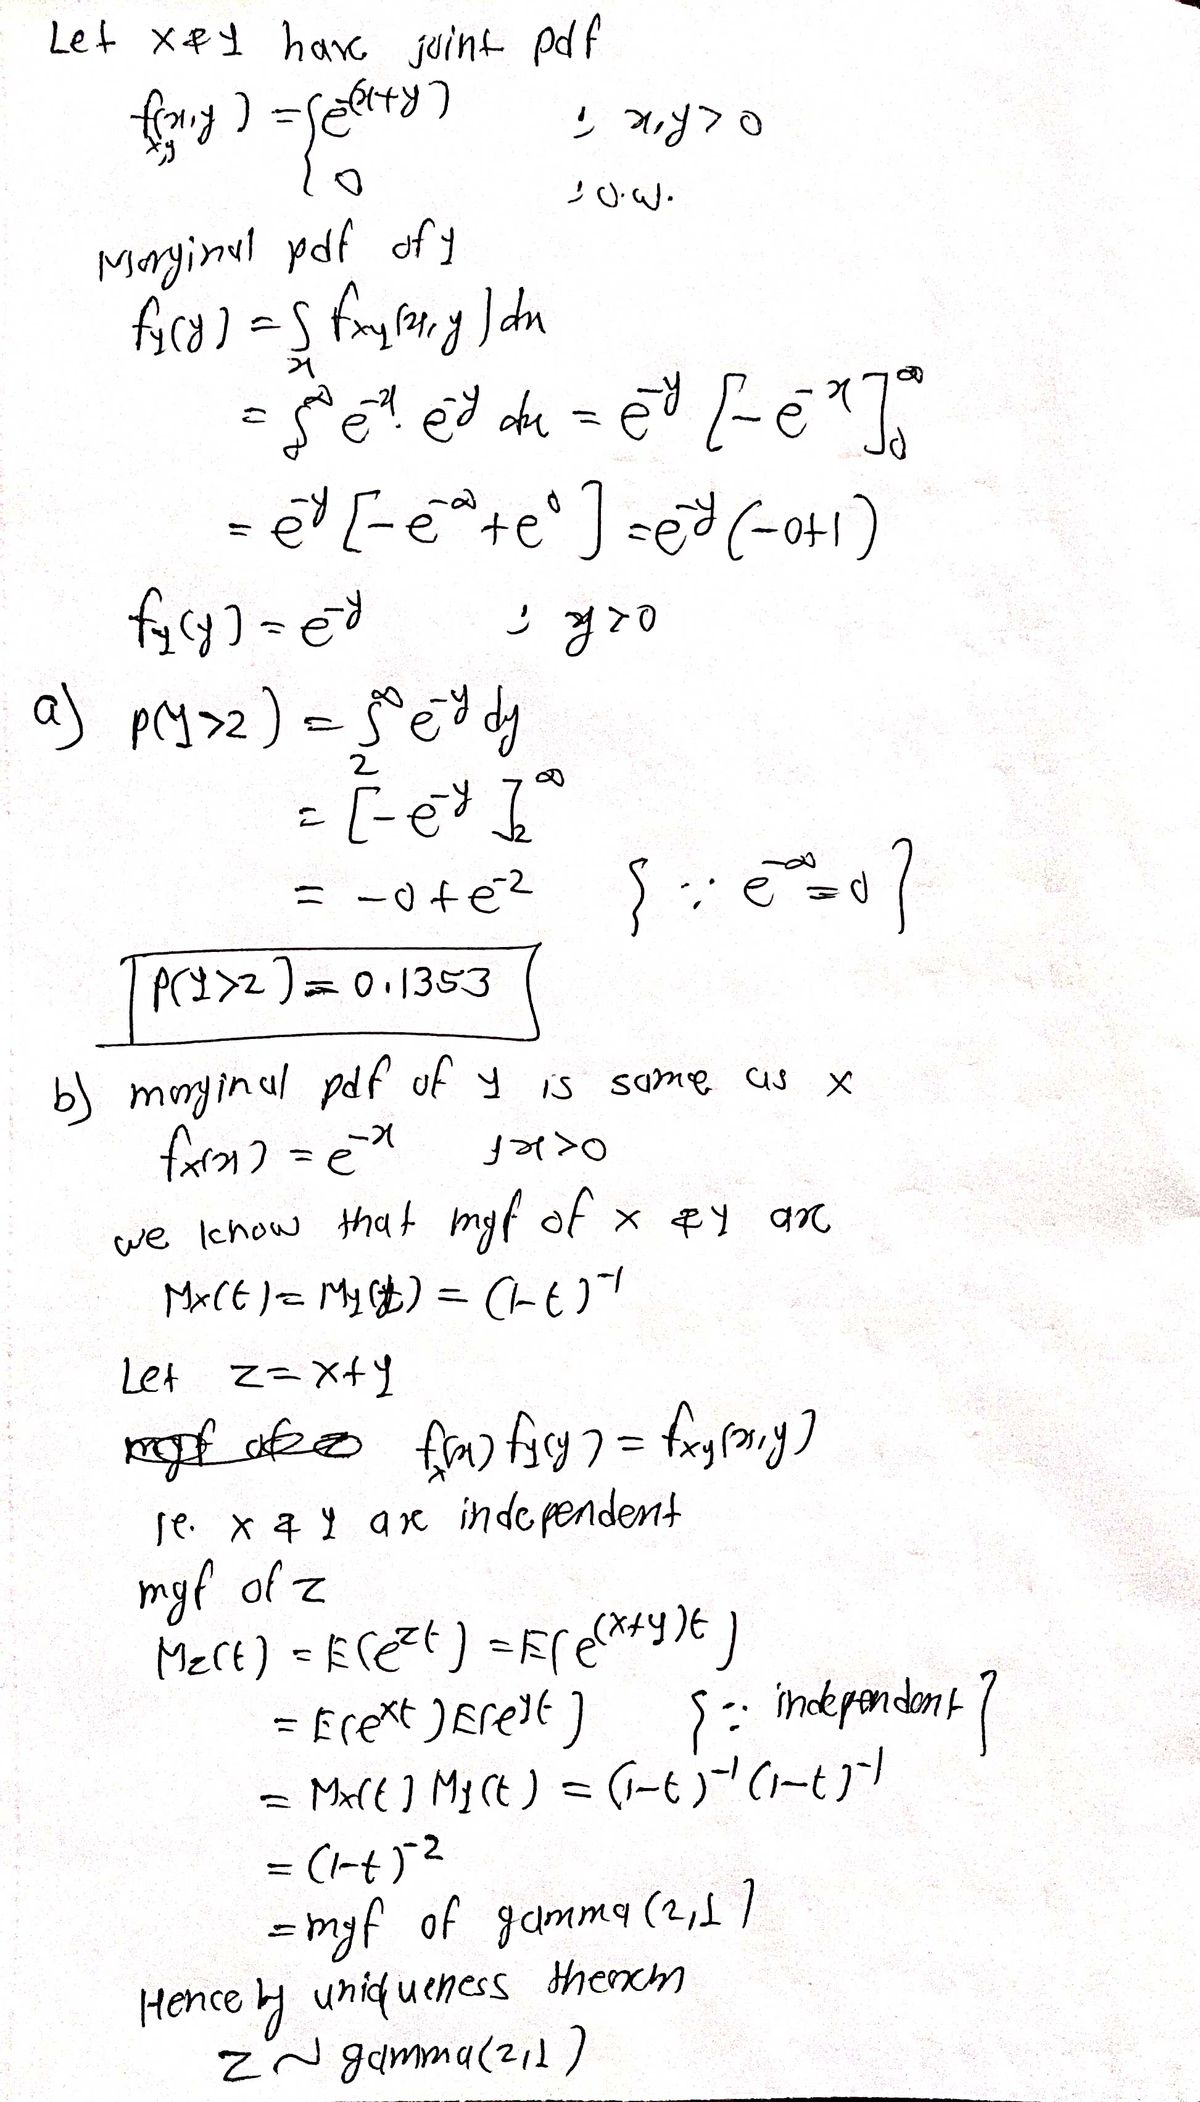 Let X & Y have joint pdf
f_{X,Y}(x,y) = { e^{-(x+y)} ; x,y > 0
0 ; o.w.
Marginal pdf of y
f_y(y) = ∫_x f_{xy}(x,y) dx
= ∫_0^∞ e^{-x} . e^{-y} dx = e^{-y} [-e^{-x}]_0^∞
= e^{-y} [-e^{-∞} + e^0] = e^{-y} (-0+1)
f_y(y) = e^{-y} ; y > 0
a) P(Y>2) = ∫_2^∞ e^{-y} dy
= [-e^{-y}]_2^∞
= -0 + e^{-2} {∵ e^{-∞} = 0}
P(Y>2) = 0.1353
b) marginal pdf of y is same as x
f_x(x) = e^{-x} ; x > 0
we know that mgf of x & y are
M_x(t) = M_y(t) = (1-t)^{-1}
Let Z = X + Y
f_x(x) f_y(y) = f_{xy}(x,y)
ie. x & y are independent
mgf of z
M_z(t) = E(e^{zt}) = E(e^{(x+y)t})
= E(e^{xt}) E(e^{yt}) {∵ independent}
= M_x(t) M_y(t) = (1-t)^{-1} (1-t)^{-1}
= (1-t)^{-2}
= mgf of gamma (2,1)
Hence by uniqueness theorem
Z ~ gamma(2,1)